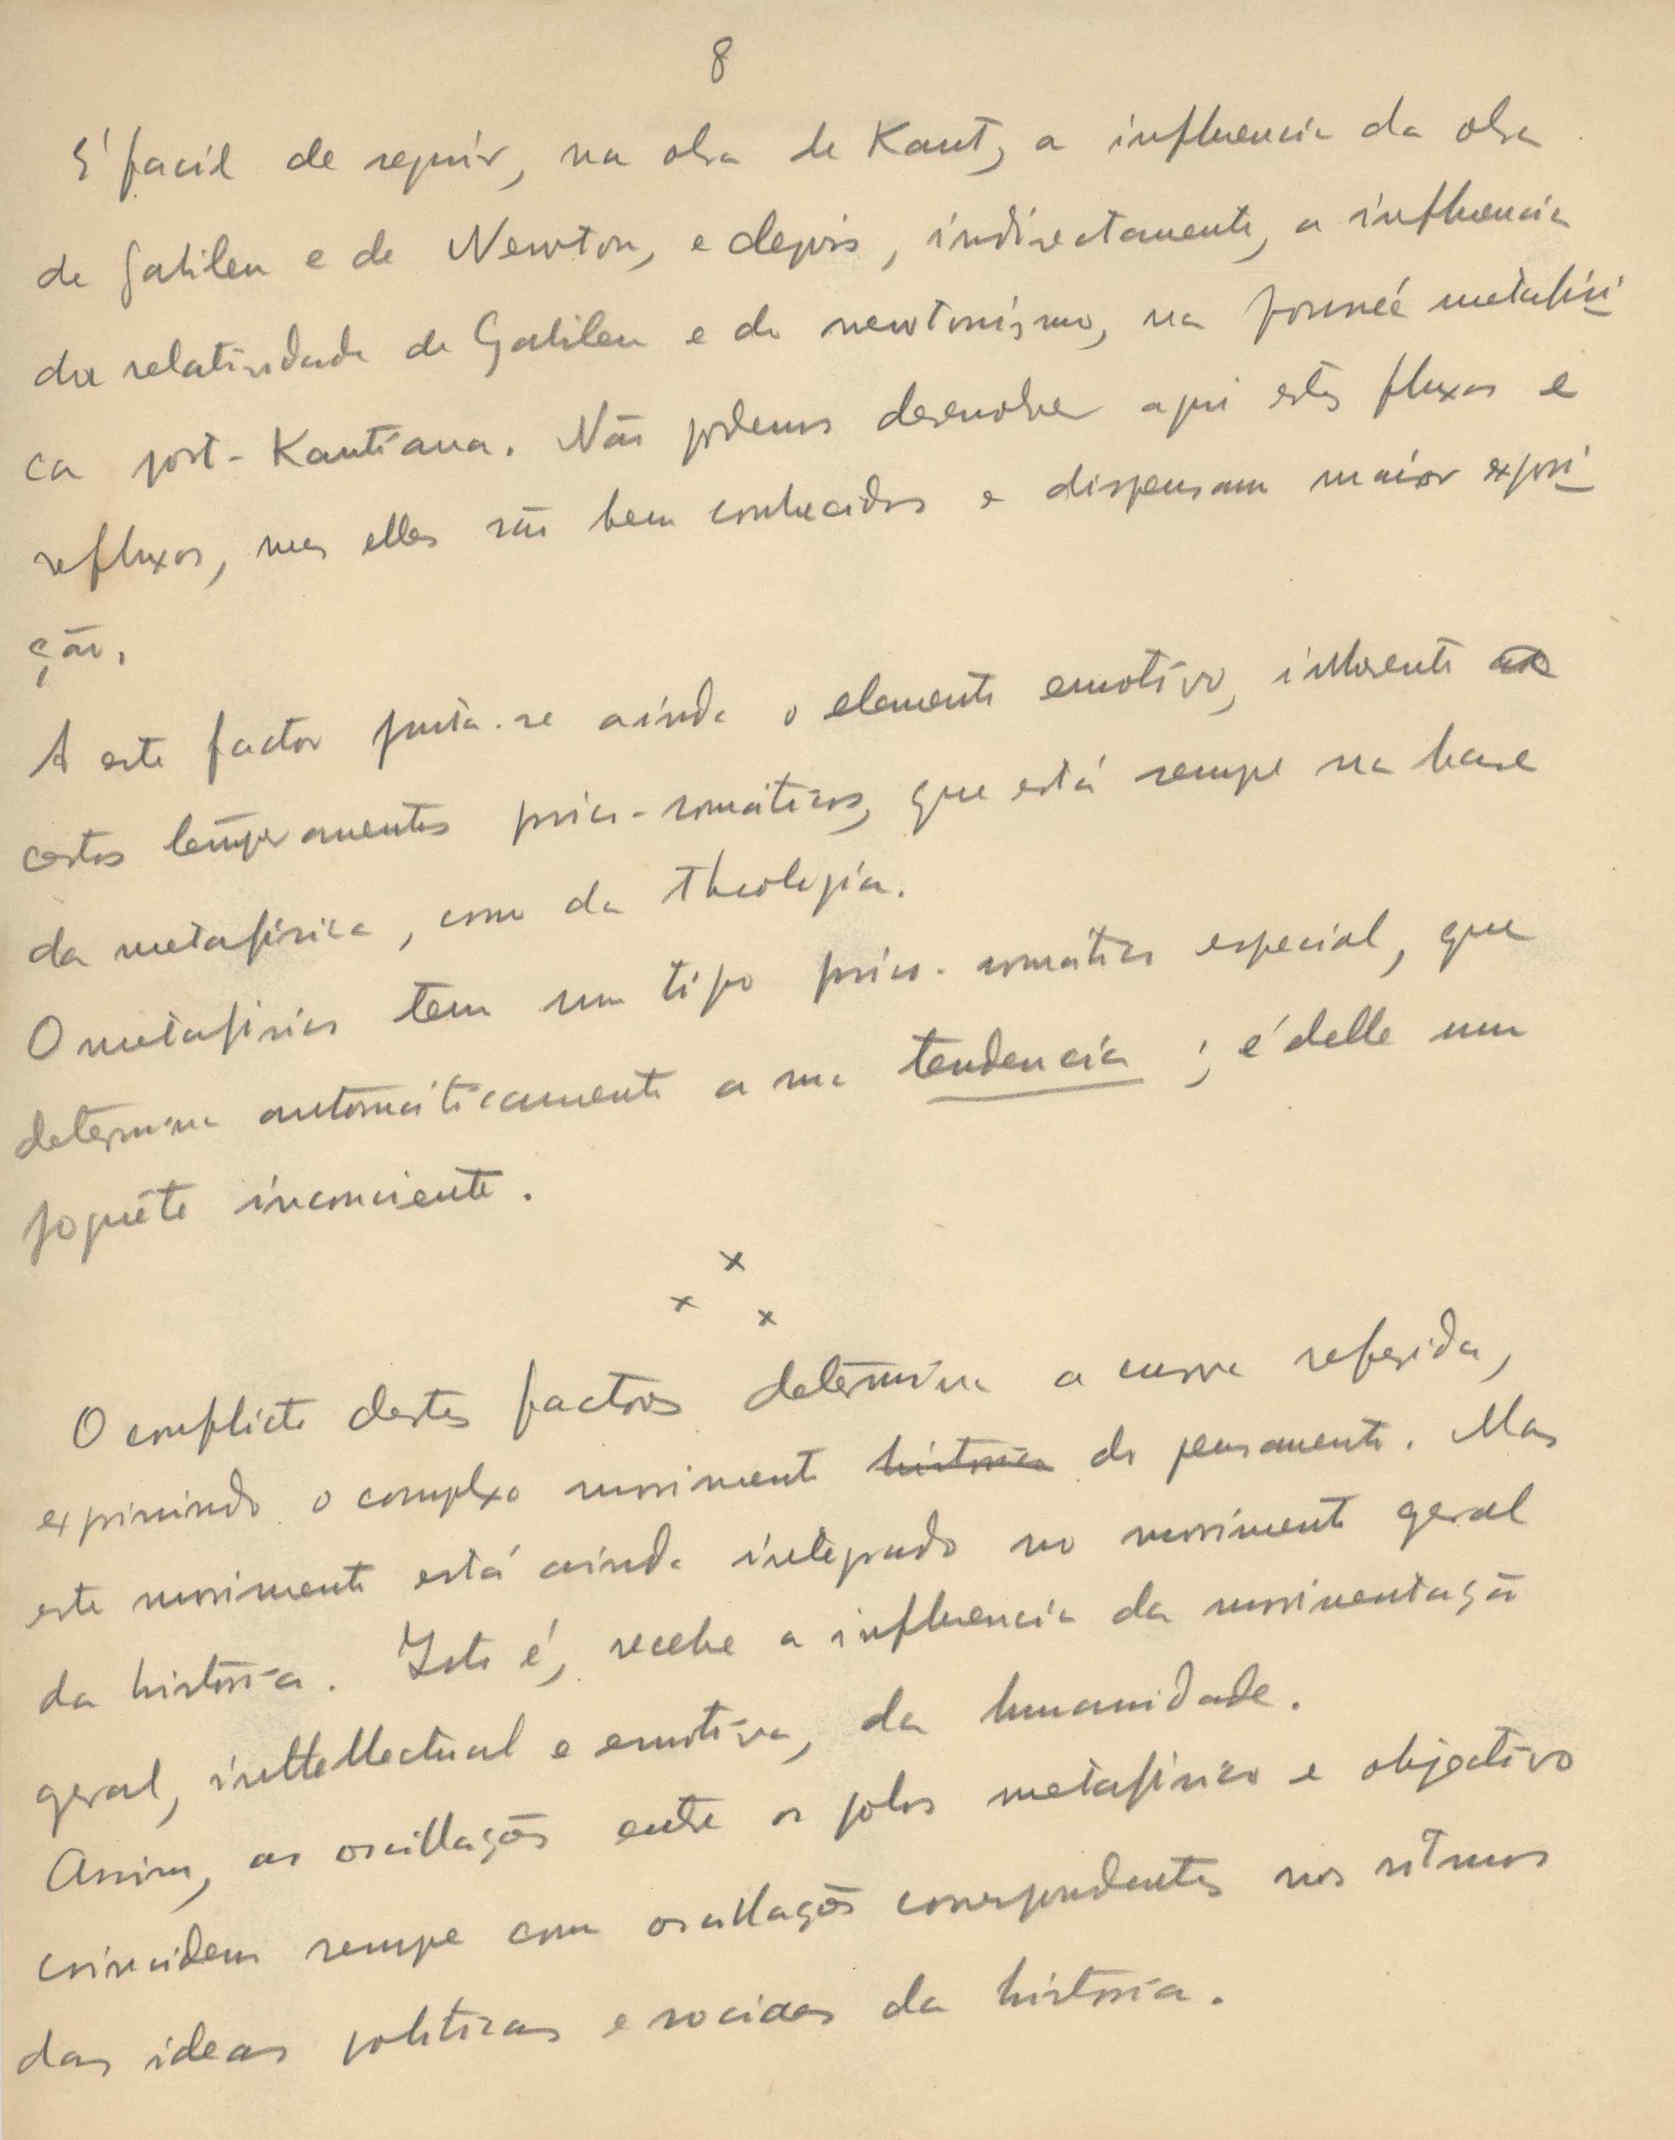 8
É facil de seguir, na obra de Kant, a influencia da obra
de Galileu e de Newton, e depois, indirectamente, a influencia
da relatividade de Galileu e do newtonismo, na poussée metafisi
ca post-Kantiana. Não podemos desenvolver aqui estes fluxos e
refluxos, mas elles são bem conhecidos e dispensam maior exposi
ção.
A este factor junta-se ainda o elemento emotivo, inherente
certos temperamentos psico-somáticos, que está sempre na base
da metafisica, como da theologia.
O metafisico tem um tipo psico-somático especial, que
determina automáticamente a sua tendencia ; é delle um
joguête inconciente.
x
x x
O conflicto destes factores determina a curva referida,
exprimindo o complexo movimento historico do pensamento. Mas
este movimento está ainda integrado no movimento geral
da história. Isto é, recebe a influencia da movimentação
geral, intellectual e emotiva, da humanidade.
Assim, as oscillações entre os polos metafisico e objectivo
coincidem sempre com oscillações correspondentes nos ritmos
das ideas politicas e sociaes da história.